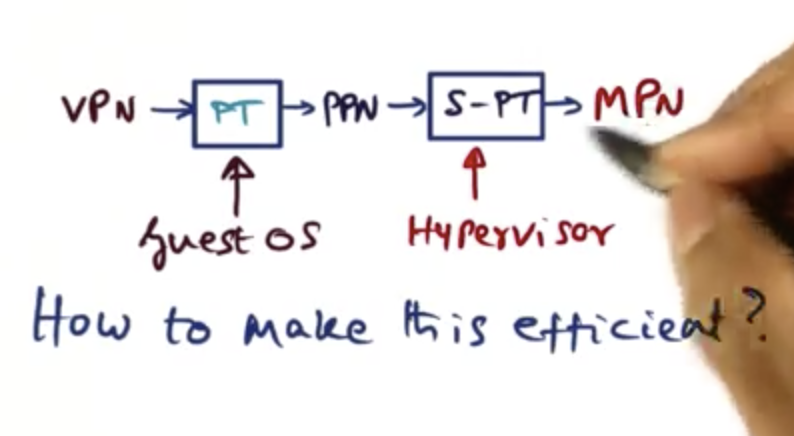 VPN → PT → PPN → S-PT → MPN
Guest OS Hypervisor
How to make this efficient?